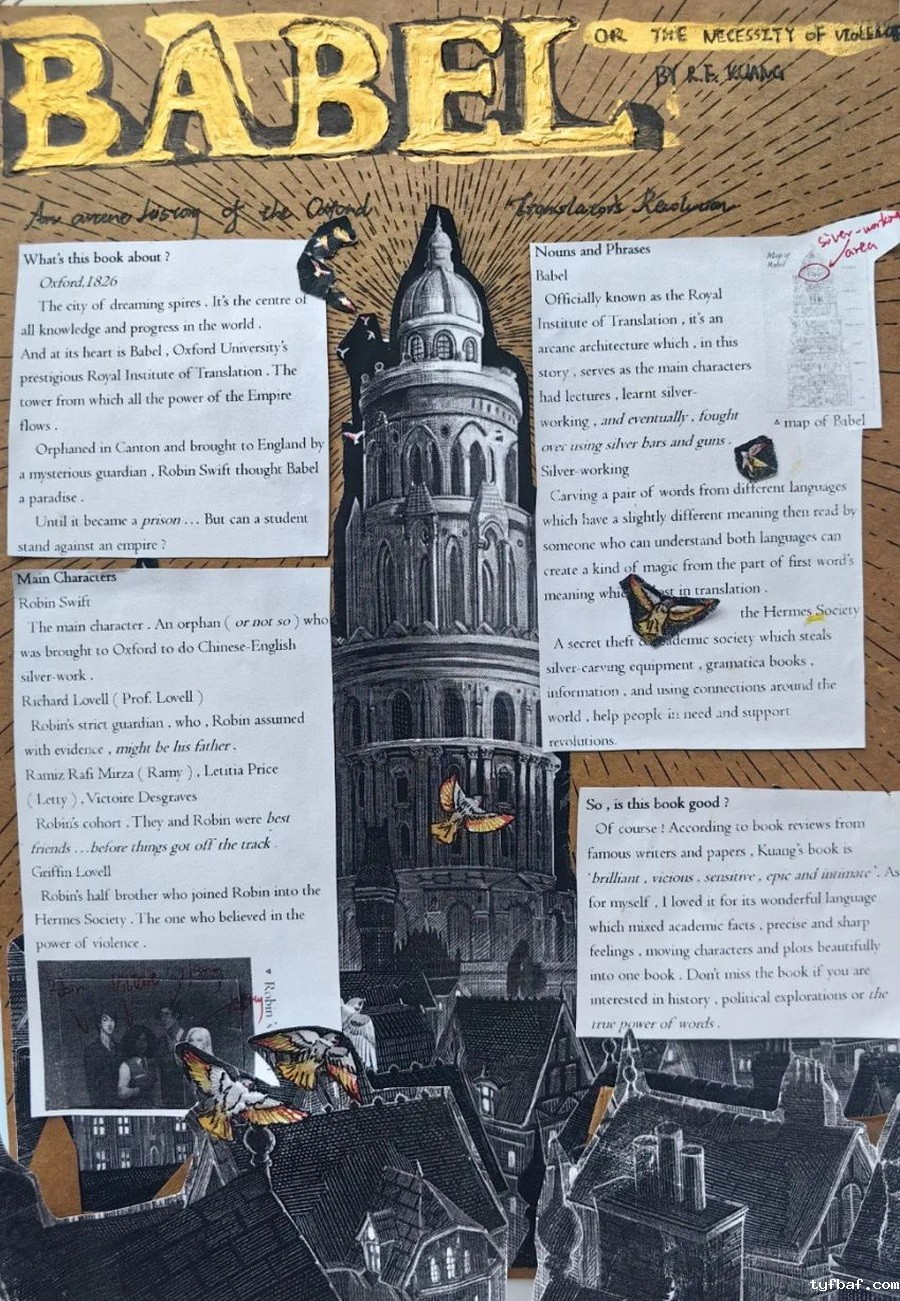 BABEL,
OR THE NECESSITY OF VIOLENCE
BY R.F. KUANG
An arcane history of the Oxford Translator's Revolution
What's this book about ?
Oxford,1826
The city of dreaming spires . It's the centre of
all knowledge and progress in the world .
And at its heart is Babel , Oxford University's
prestigious Royal Institute of Translation . The
tower from which all the power of the Empire
flows .
Orphaned in Canton and brought to England by
a mysterious guardian , Robin Swift thought Babel
a paradise .
Until it became a prison … But can a student
stand against an empire ?
Main Characters
Robin Swift
The main character . An orphan ( or not so ) who
was brought to Oxford to do Chinese-English
silver-work .
Richard Lovell ( Prof. Lovell )
Robin's strict guardian , who , Robin assumed
with evidence , might be his father .
Ramiz Rafi Mirza ( Ramy ) , Letitia Price
( Letty ) , Victoire Desgraves
Robin's cohort . They and Robin were best
friends …before things got off the track .
Griffin Lovell
Robin's half brother who joined Robin into the
Hermes Society . The one who believed in the
power of violence .
Robin
Nouns and Phrases
Babel
Officially known as the Royal
Institute of Translation , it's an
arcane architecture which , in this
story , serves as the main characters
had lectures , learnt silver-
working , and eventually , fought
over using silver bars and guns .
silver-working
area
Map of
Babel
▵ map of Babel
Silver-working
Carving a pair of words from different languages
which have a slightly different meaning then read by
someone who can understand both languages can
create a kind of magic from the part of first word's
meaning in translation .
the Hermes Society
A secret theft academic society which steals
silver-carving equipment , gramatica books ,
information , and using connections around the
world , help people in need and support
revolutions.
So , is this book good ?
Of course ! According to book reviews from
famous writers and papers , Kuang's book is
'brilliant , vicious , sensitive , epic and intimate' . As
for myself , I loved it for its wonderful language
which mixed academic facts , precise and sharp
feelings , moving characters and plots beautifully
into one book . Don't miss the book if you are
interested in history , political explorations or the
true power of words .
tyfbaf.com